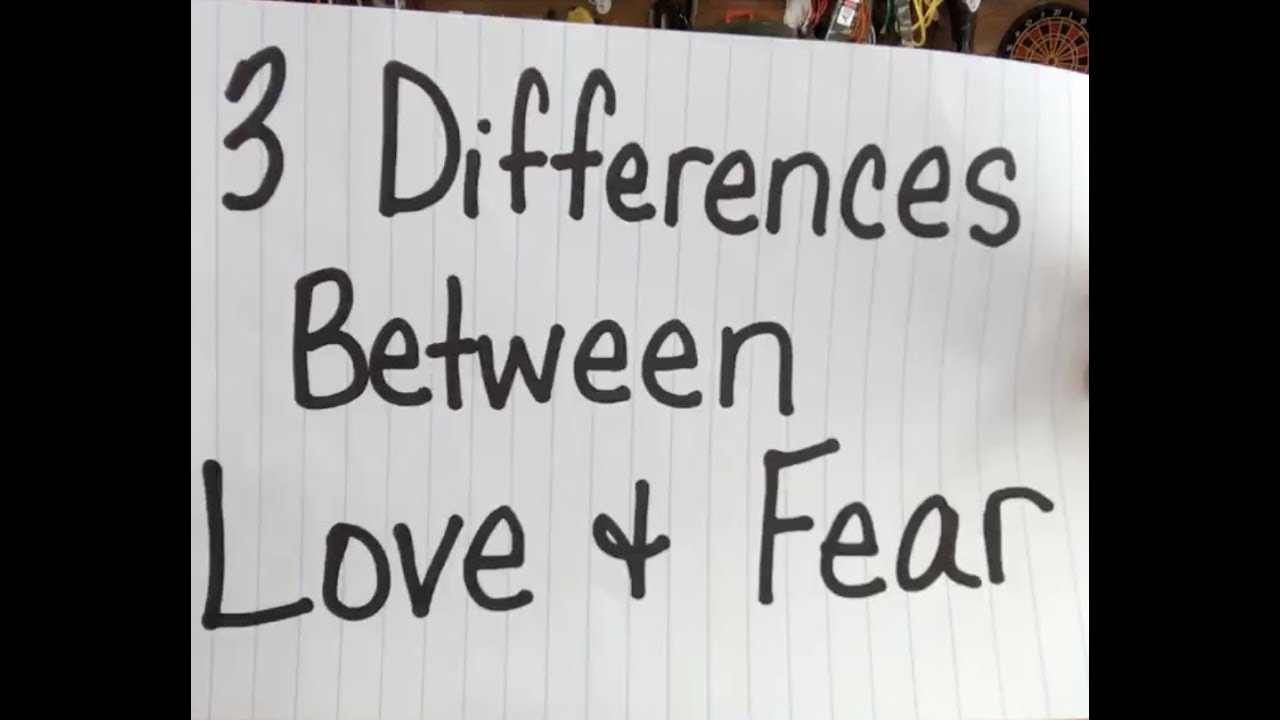 3 Differences
Between
Love & Fear